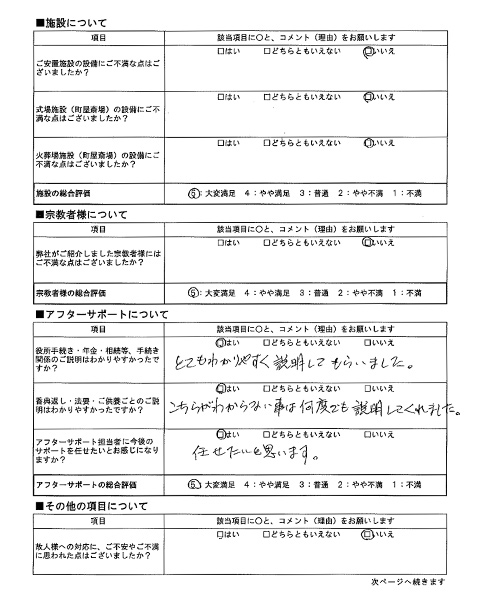 ■施設について
項目 該当項目に○と、コメント（理由）をお願いします
ご安置施設の設備にご不満な点はご
ざいましたか？
□はい □どちらともいえない □いいえ
式場施設（町屋斎場）の設備にご不
満な点はございましたか？
□はい □どちらともいえない □いいえ
火葬場施設（町屋斎場）の設備にご
不満な点はございましたか？
□はい □どちらともいえない □いいえ
施設の総合評価 5：大変満足 4：やや満足 3：普通 2：やや不満 1：不満
■宗教者様について
項目 該当項目に○と、コメント（理由）をお願いします
弊社がご紹介しました宗教者様には
ご不満な点はございましたか？
□はい □どちらともいえない □いいえ
宗教者様の総合評価 5：大変満足 4：やや満足 3：普通 2：やや不満 1：不満
■アフターサポートについて
項目 該当項目に○と、コメント（理由）をお願いします
役所手続き・年金・相続等、手続き
関係のご説明はわかりやすかったで
すか？
□はい □どちらともいえない □いいえ
とてもわかりやすく説明してもらいました。
香典返し・法要・ご供養ごとのご説
明はわかりやすかったですか？
□はい □どちらともいえない □いいえ
こちらがわからない事は何度でも説明してくれました。
アフターサポート担当者に今後の
サポートを任せたいとお感じになり
ますか？
□はい □どちらともいえない □いいえ
任せたいと思います。
アフターサポートの総合評価 5：大変満足 4：やや満足 3：普通 2：やや不満 1：不満
■その他の項目について
項目 該当項目に○と、コメント（理由）をお願いします
故人様への対応に、ご不安やご不満
に思われた点はございましたか？
□はい □どちらともいえない □いいえ
次ページへ続きます